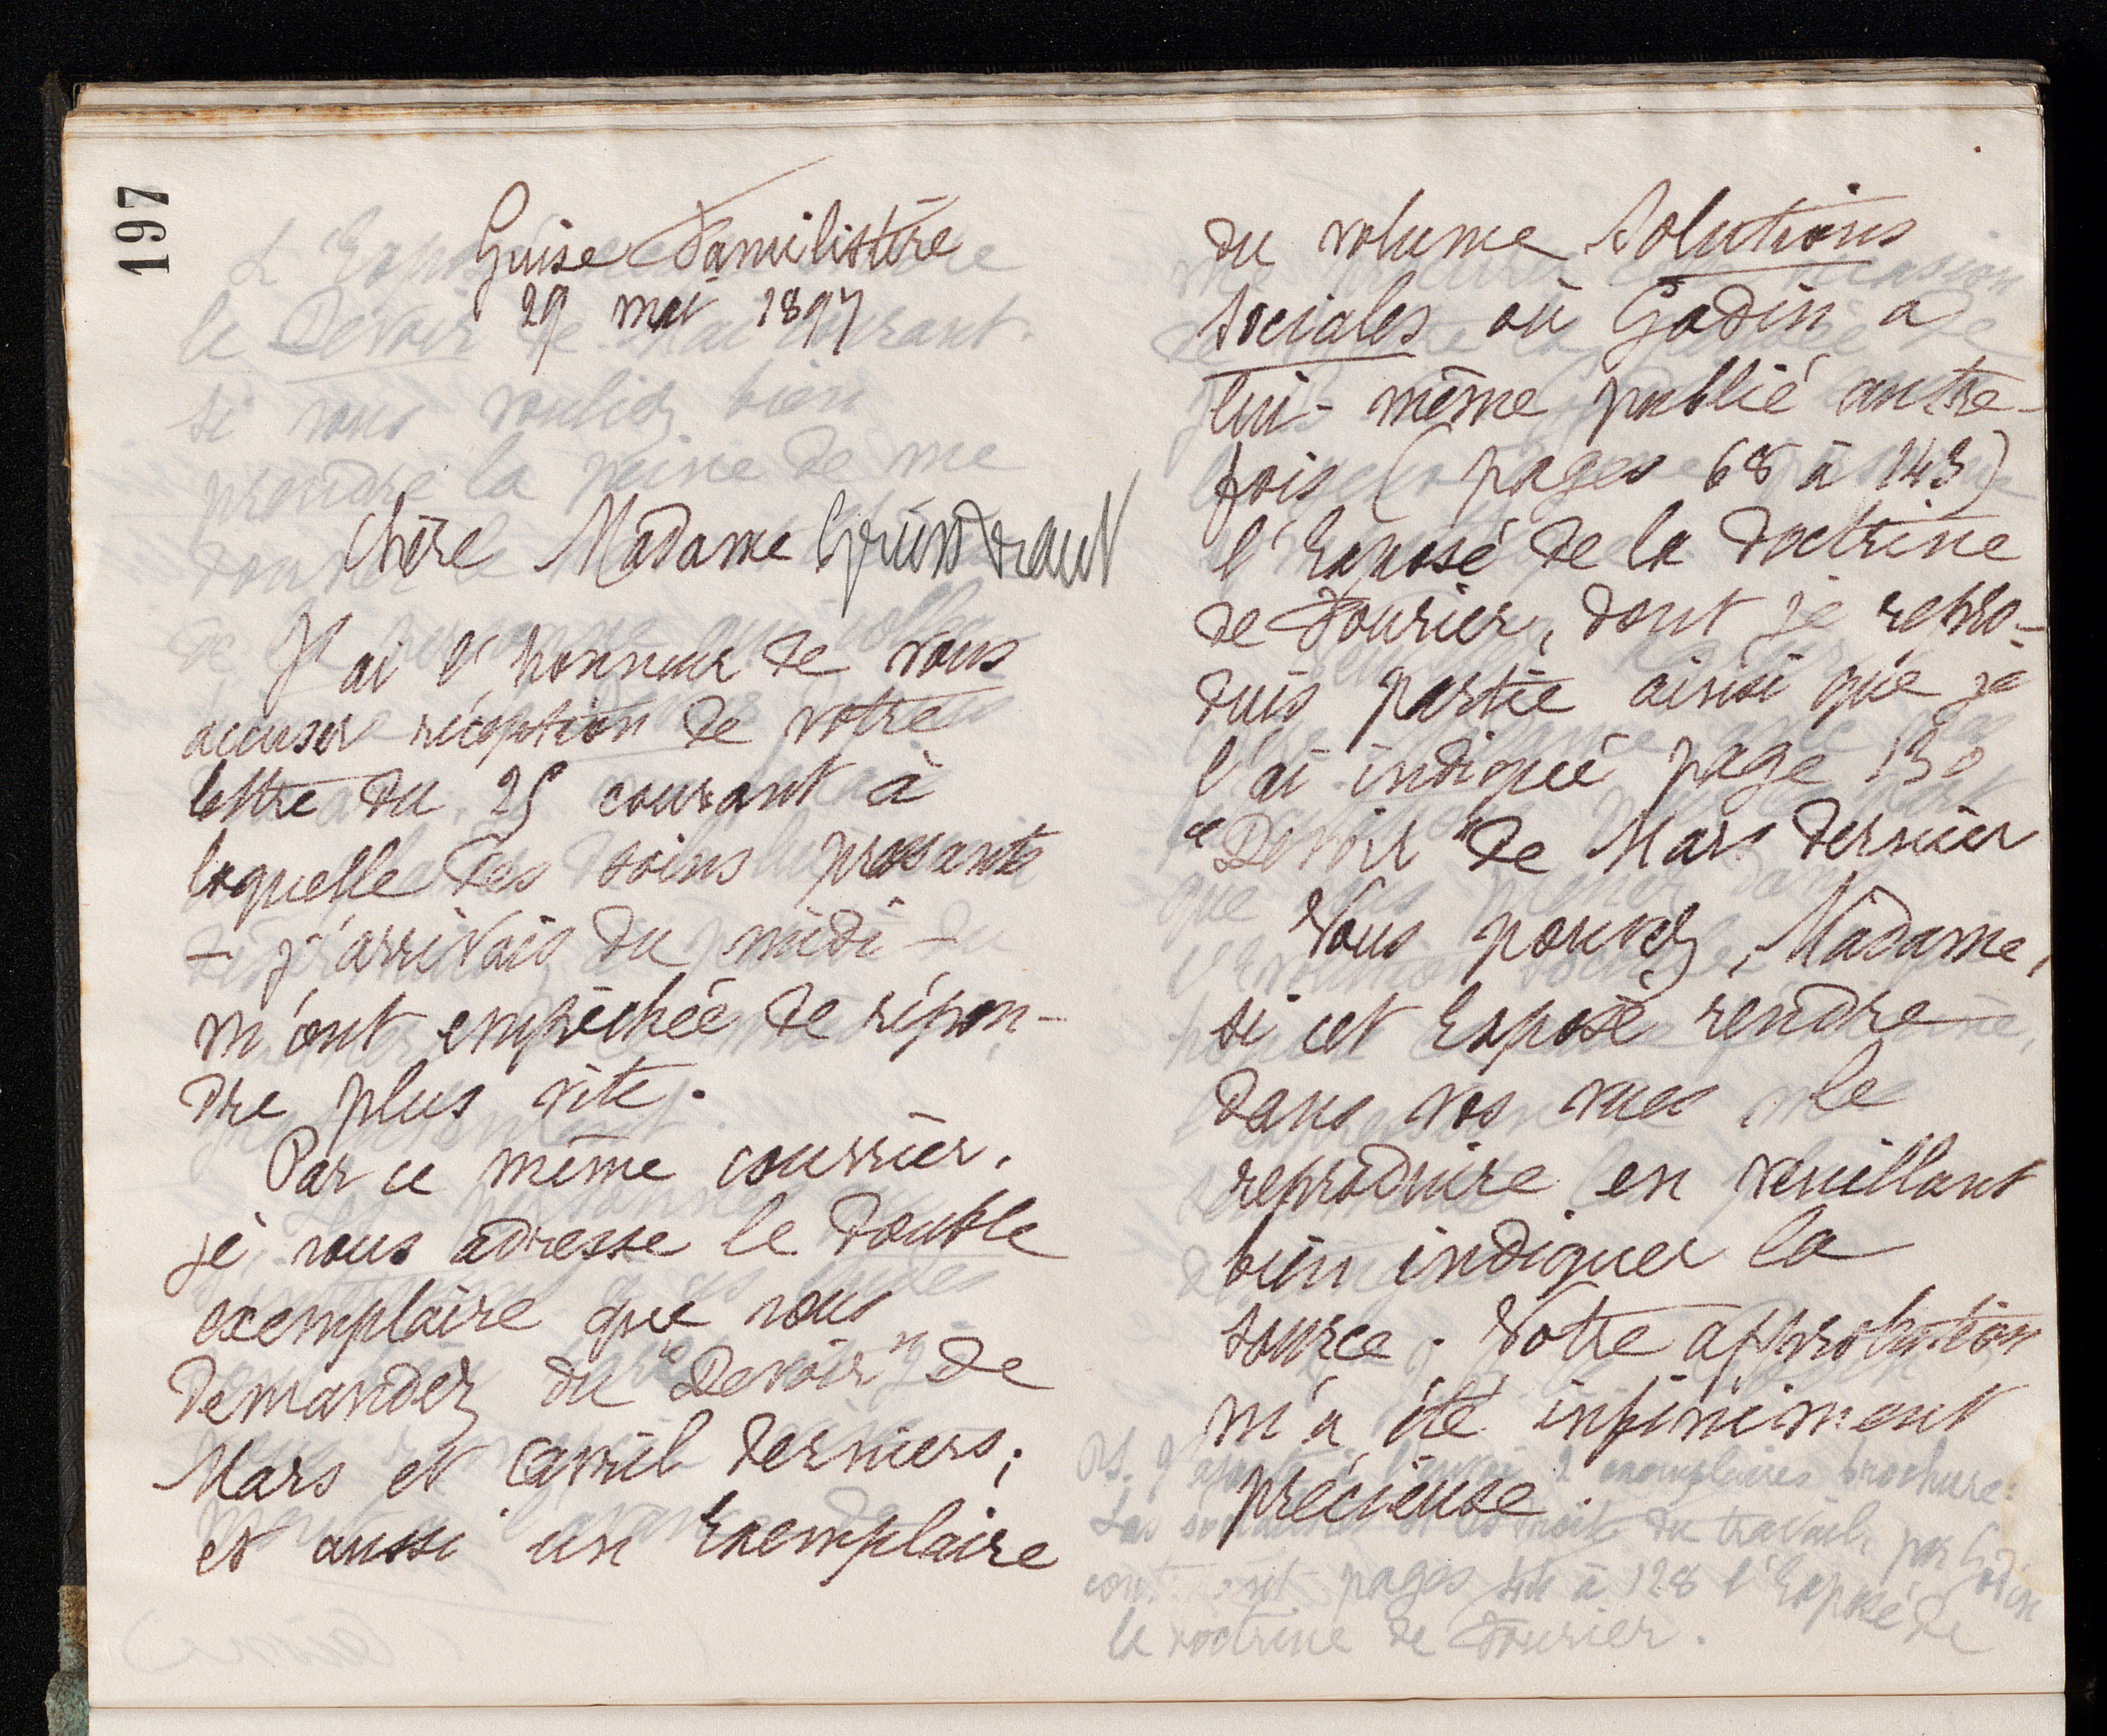 197
Guise Familistère
29 mai 1897
Chère Madame
J'ai l'honneur de vous
accuser réception de votre
lettre du 25 courant à
laquelle des soins pressants
— j'arrivais du midi —
m'ont empêchée de répon-
dre plus vite.
Par ce même courrier,
je vous adresse le double
exemplaire que vous
demandez du "Devoir" de
Mars et avril derniers;
et aussi un Exemplaire
du volume Solutions
sociales où Godin a
lui-même publié autre-
fois (pages 68 à 143)
l'Exposé de la doctrine
de Fourier, dont je repro-
duis partie ainsi que je
l'ai indiqué page 130
"Devoir" de Mars dernier
Vous pouvez, Madame,
si cet Exposé rendre
dans vos vues le
reproduire en veuillant
bien indiquer la
source. Votre approbation
m'a été infiniment
précieuse.
2 exemplaires brochure:
du travail, par Godin
pages 44 à 128 l'Exposé de
la doctrine de Fourier.